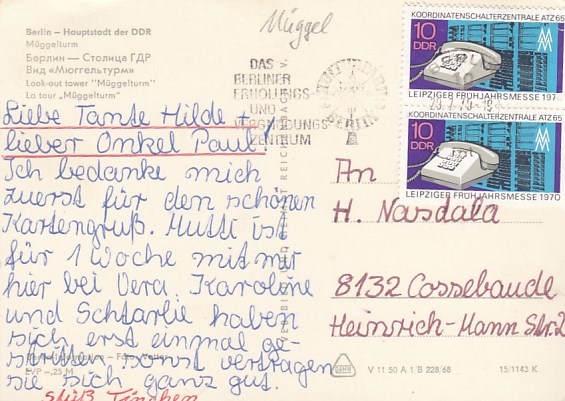 Müggel
Berlin – Hauptstadt der DDR
Müggelturm
Берлин — Столица ГДР
Вид «Мюггельтурм»
Look-out tower "Müggelturm"
La tour „Müggelturm"
DAS
BERLINER
ERHOLUNGS-
UND
VERGNÜGUNGS-
ZENTRUM
BERLIN
KOORDINATENSCHALTERZENTRALE ATZ 65
10
DDR
LEIPZIGER FRÜHJAHRSMESSE 197
KOORDINATENSCHALTERZENTRALE ATZ 65
10
DDR
LEIPZIGER FRÜHJAHRSMESSE 1970
Liebe Tante Hilde +
lieber Onkel Paul!
Ich bedanke mich
zuerst für den schönen
Kartengruß. Mutti ist
für 1 Woche mit mir
hier bei Vera. Karoline
und Schtarlie haben
sich erst einmal ge-
stritten, sonst vertragen
sie sich ganz gut.
An
H. Nasdala
8132 Cossebaude
Heinrich-Mann Str. 2
EVP –,25 M
V 11 50 A 1/B 228/68
15/1143 K